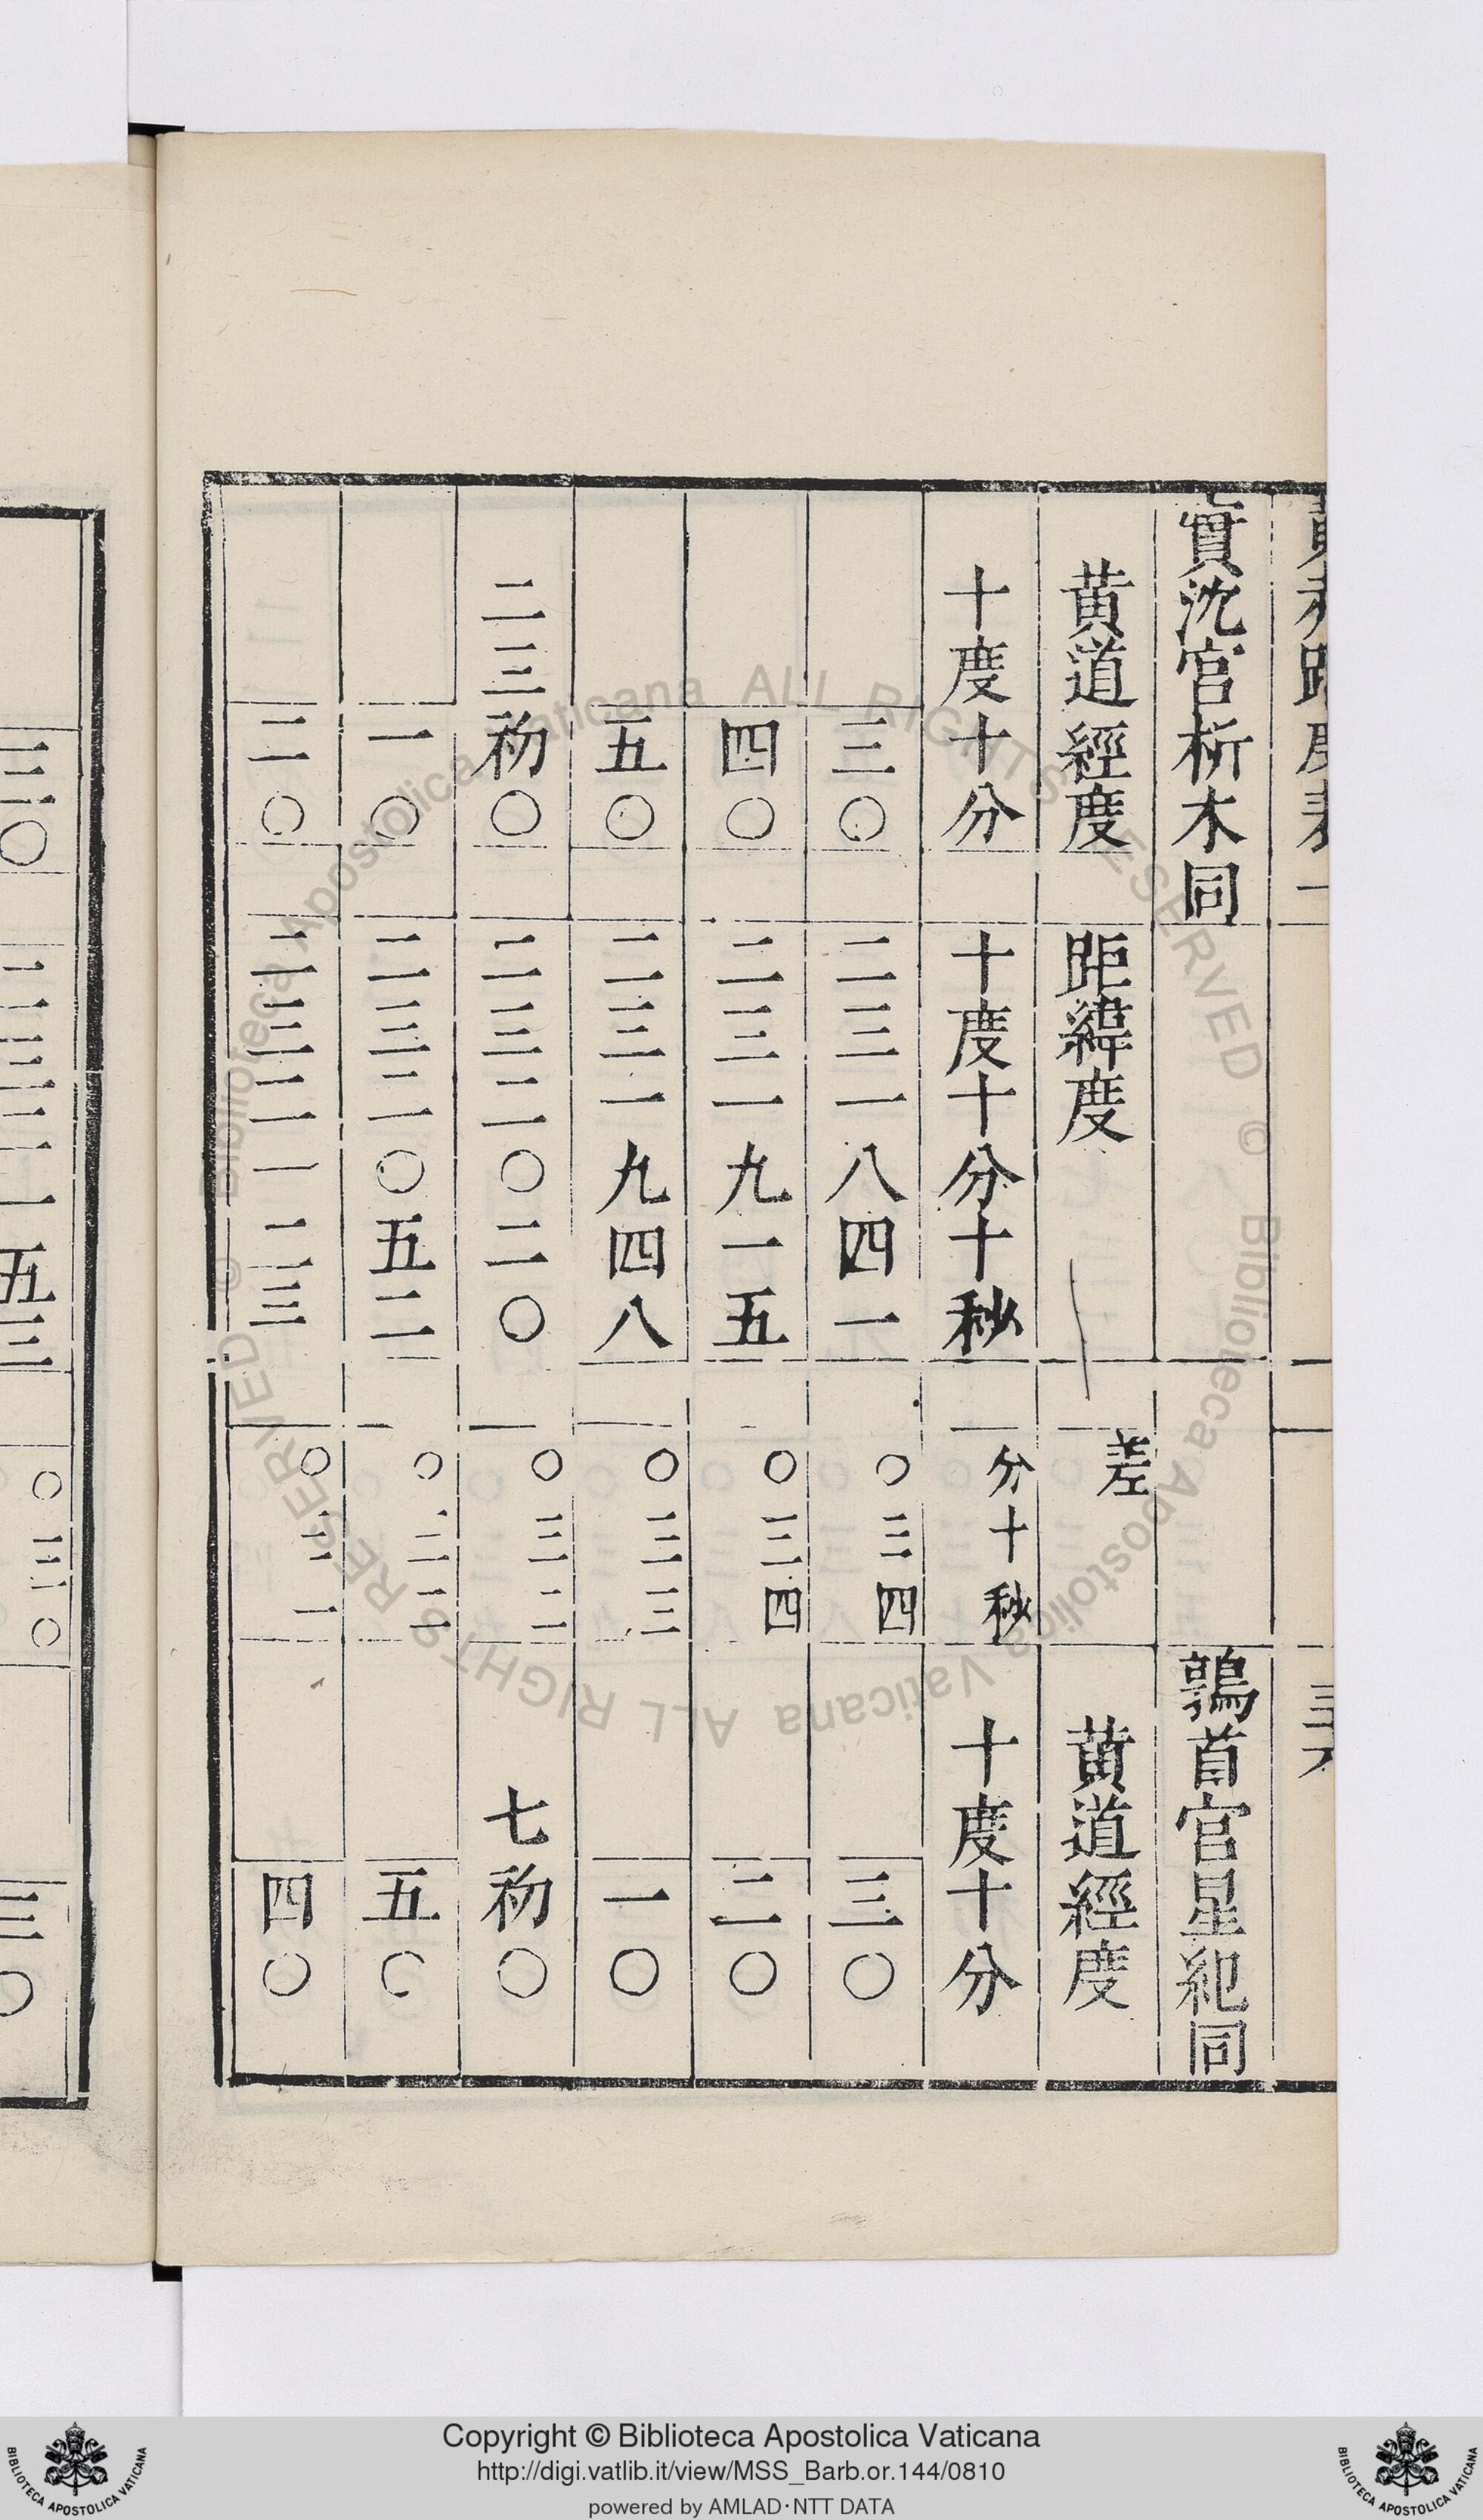 黃赤距度表一
實沈官析木同 鶉首官星紀同
黃道經度 距緯度 差 黃道經度
十度十分 十度十分十秒 分十秒 十度十分
三〇 二三一八四一 〇三四 三〇
四〇 二三一九一五 〇三四 二〇
五〇 二三一九四八 〇三三 一〇
二三初〇 二三二〇二〇 〇三二 七初〇
一〇 二三二〇五二 〇三二 五〇
二〇 二三二一二三 〇三一 四〇
三〇 二三二一五三 〇三〇 三〇
© Biblioteca Apostolica Vaticana ALL RIGHTS RESERVED © Biblioteca Apostolica Vaticana ALL RIGHTS RESERVED
Copyright © Biblioteca Apostolica Vaticana
http://digi.vatlib.it/view/MSS_Barb.or.144/0810
powered by AMLAD·NTT DATA
BIBLIOTECA APOSTOLICA VATICANA
BIBLIOTECA APOSTOLICA VATICANA